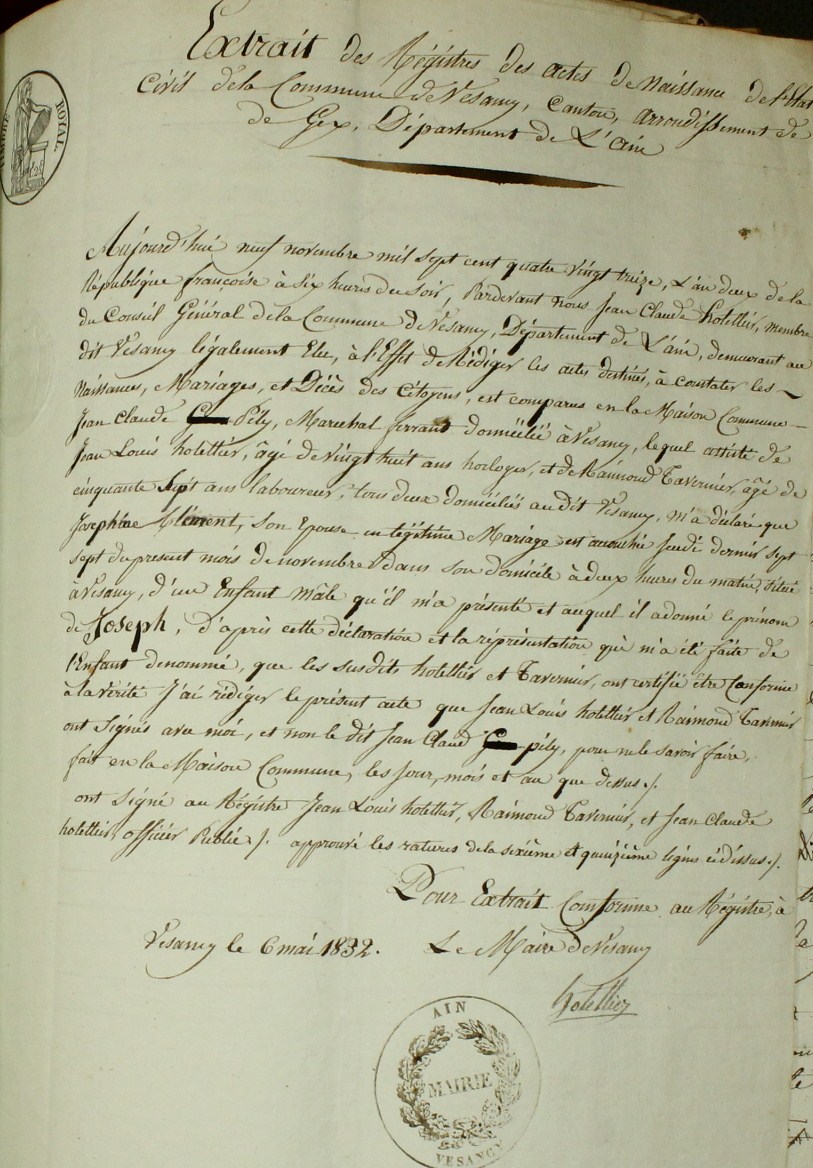 Extrait des Régistres des actes de Naissance de l'Etat
Civil de la Commune de Vesancy, Canton, arrondissement de
de Gex, Département de L'ain
TIMBRE ROYAL.
Aujourd'hui neuf novembre mil sept cent quatre vingt treize, L'an deux de la
République françoise à six heures du soir, Pardevant nous Jean Claude hotellier, membre
du Conseil Général de la Commune de Vesancy, Département de L'ain, demeurant au
dit Vesancy légalement Elu, à l'Effet de Rédiger les actes destinés, à constater les
Naissances, Mariages, et Décès des Citoyens, est comparus en la Maison Commune
Jean Claude Pély, Marechal ferrant domicilié à Vesancy, lequel assisté de
Jean Louis hotellier, âgé de vingt huit ans horloger, et de Raimond Tavernier, âgé de
cinquante sept ans laboureur, tous deux domiciliés au dit Vesancy, m'a déclaré que
Josephine Clément, son Epouse en légitime Mariage est accouchée jeudi dernier sept
du présent mois de novembre dans son domicile à deux heures du matin, située
à Vesancy, d'un Enfant mâle qu'il m'a présenté et auquel il a donné le prénom
de Joseph, d'après cette déclaration et la réprésentation qui m'a été faite de
l'Enfant denommé, que les susdits hotellier et Tavernier, ont certifié être Conforme
à la vérité J'ai rédiger le présent acte que Jean Louis hotellier et Raimond Tavernier
ont signés avec moi, et non le dit Jean Claud pély, pour ne le savoir faire,
fait en la Maison Commune, les jour, mois et an que dessus ./.
ont signé au Régistre Jean Louis hotellier, Raimond Tavernier, et Jean Claude
hotellier, officier Public ./. approuvé les ratures de la sixième et quinzième lignes cidessus ./.
Pour Extrait Comforme au Régistre, à
Vesancy le 6 mai 1832. Le Maire de Vesancy
hotellier
AIN
MAIRIE
VESANCY